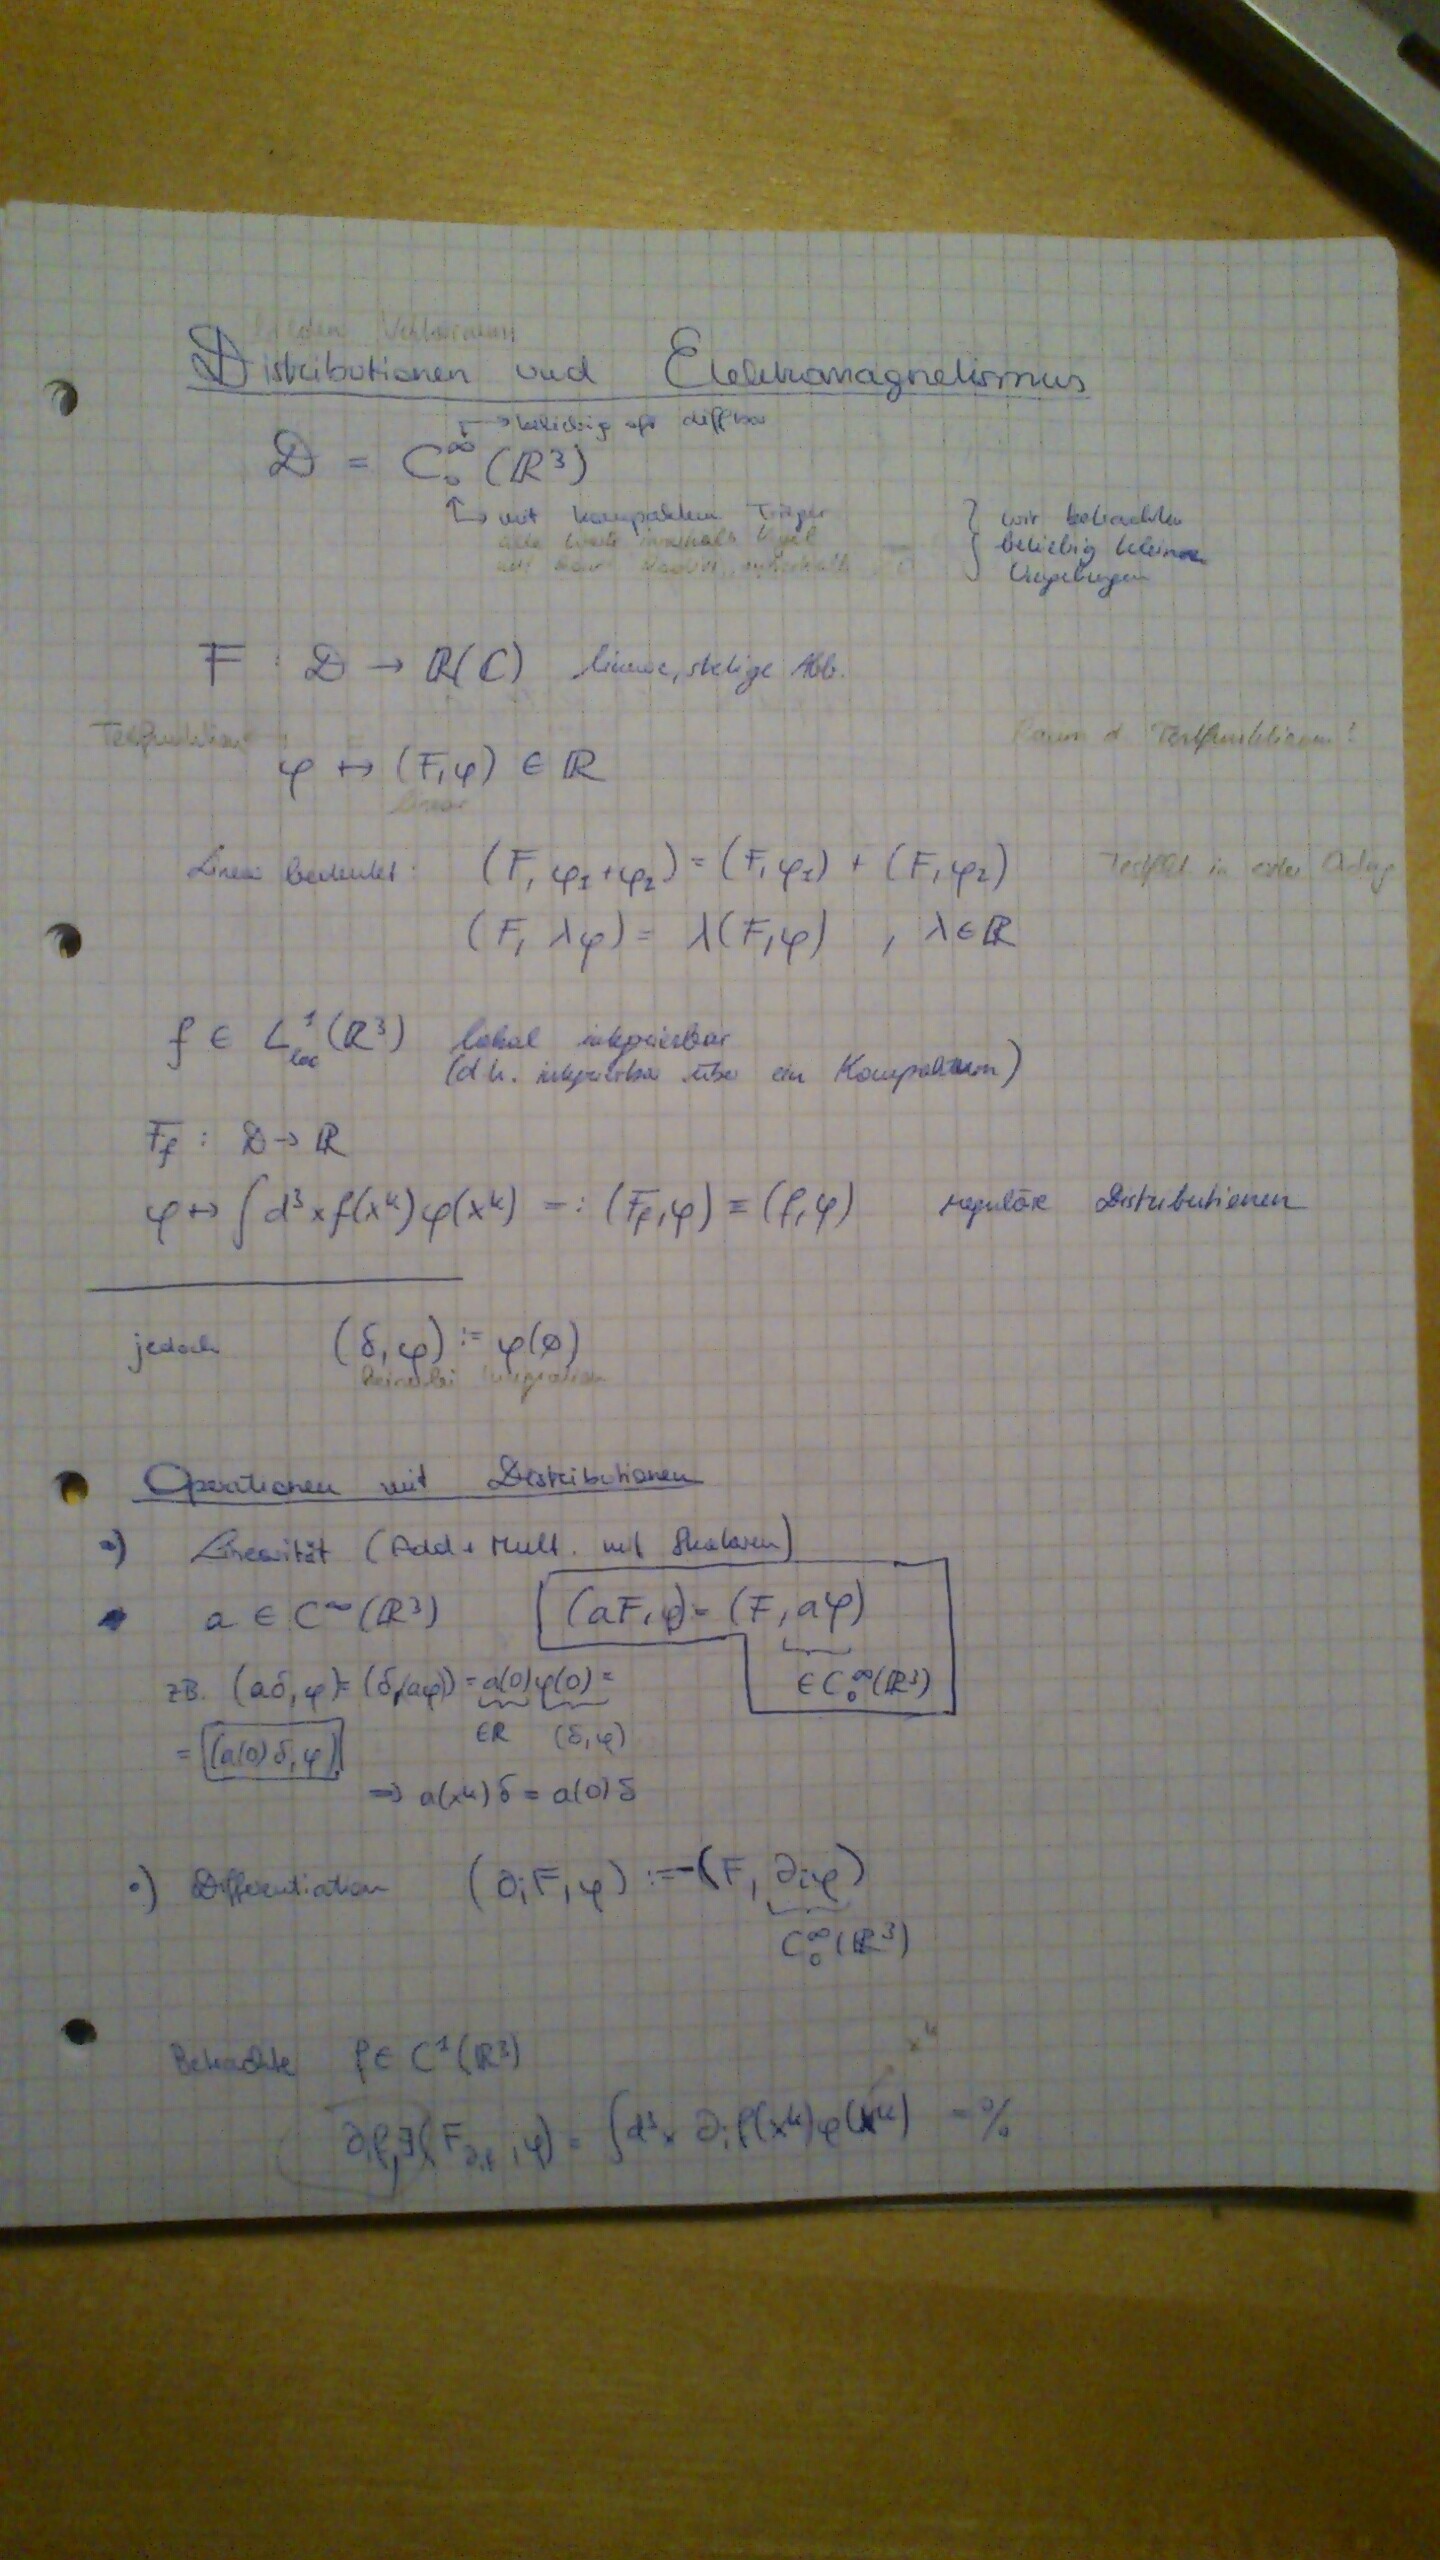 bilden Vektorraum
Distributionen und Elektromagnetismus
→ beliebig oft diffbar
𝒟 = C₀^∞(ℝ³)
↳ mit kompaktem Träger
alle Werte innerhalb Kugel
wir betrachten
beliebig kleine
Umgebungen
F : 𝒟 → ℝ(ℂ) lineare, stetige Abb.
Testfunktion
Raum d Testfunktionen!
φ ↦ (F,φ) ∈ ℝ
linear
Linear bedeutet: (F, φ₁+φ₂) = (F,φ₁) + (F,φ₂)
(F, λφ) = λ(F,φ) , λ∈ℝ
f ∈ L¹_loc(ℝ³) lokal integrierbar
(d.h. integrierbar über ein Kompaktum)
F_f : 𝒟 → ℝ
φ ↦ ∫d³x f(x^k) φ(x^k) =: (F_f,φ) ≡ (f,φ) reguläre Distributionen
jedoch (δ,φ) := φ(0)
keinerlei Integration
Operationen mit Distributionen
•) Linearität (Add + Mult. mit Skalaren)
a ∈ C^∞(ℝ³) (aF,φ) = (F,aφ)
∈ C₀^∞(ℝ³)
zB. (aδ,φ) = (δ,aφ) = a(0)φ(0) =
∈ℝ (δ,φ)
= (a(0)δ,φ)
⇒ a(x^k)δ = a(0)δ
•) Differentiation (∂ᵢF,φ) := -(F, ∂ᵢφ)
C₀^∞(ℝ³)
x^k
Betrachte f ∈ C¹(ℝ³)
(F_∂ᵢf ,φ) = ∫d³x ∂ᵢf(x^k)φ(x^k) = %